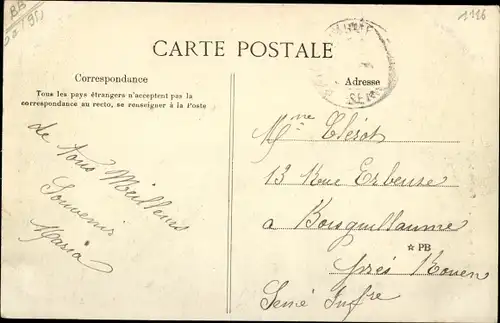 1126
CARTE POSTALE
Correspondance
Adresse
Tous les pays étrangers n'acceptent pas la
correspondance au recto, se renseigner à la Poste
de tous Meilleurs
Souvenirs
Maria
Mme Clérot
13 Rue Erbeuse
a Boisguillaume
☆ PB
près Rouen
Seine Infre